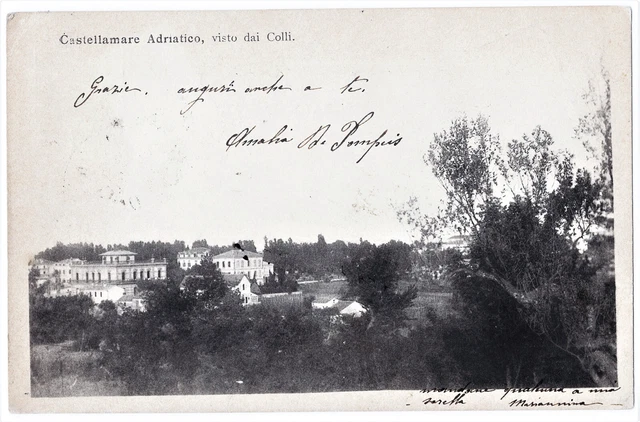 Castellamare Adriatico, visto dai Colli.
Grazie. augurî anche a te.
Amalia De Pompeis
qualcuna a mia
sorella Mariannina